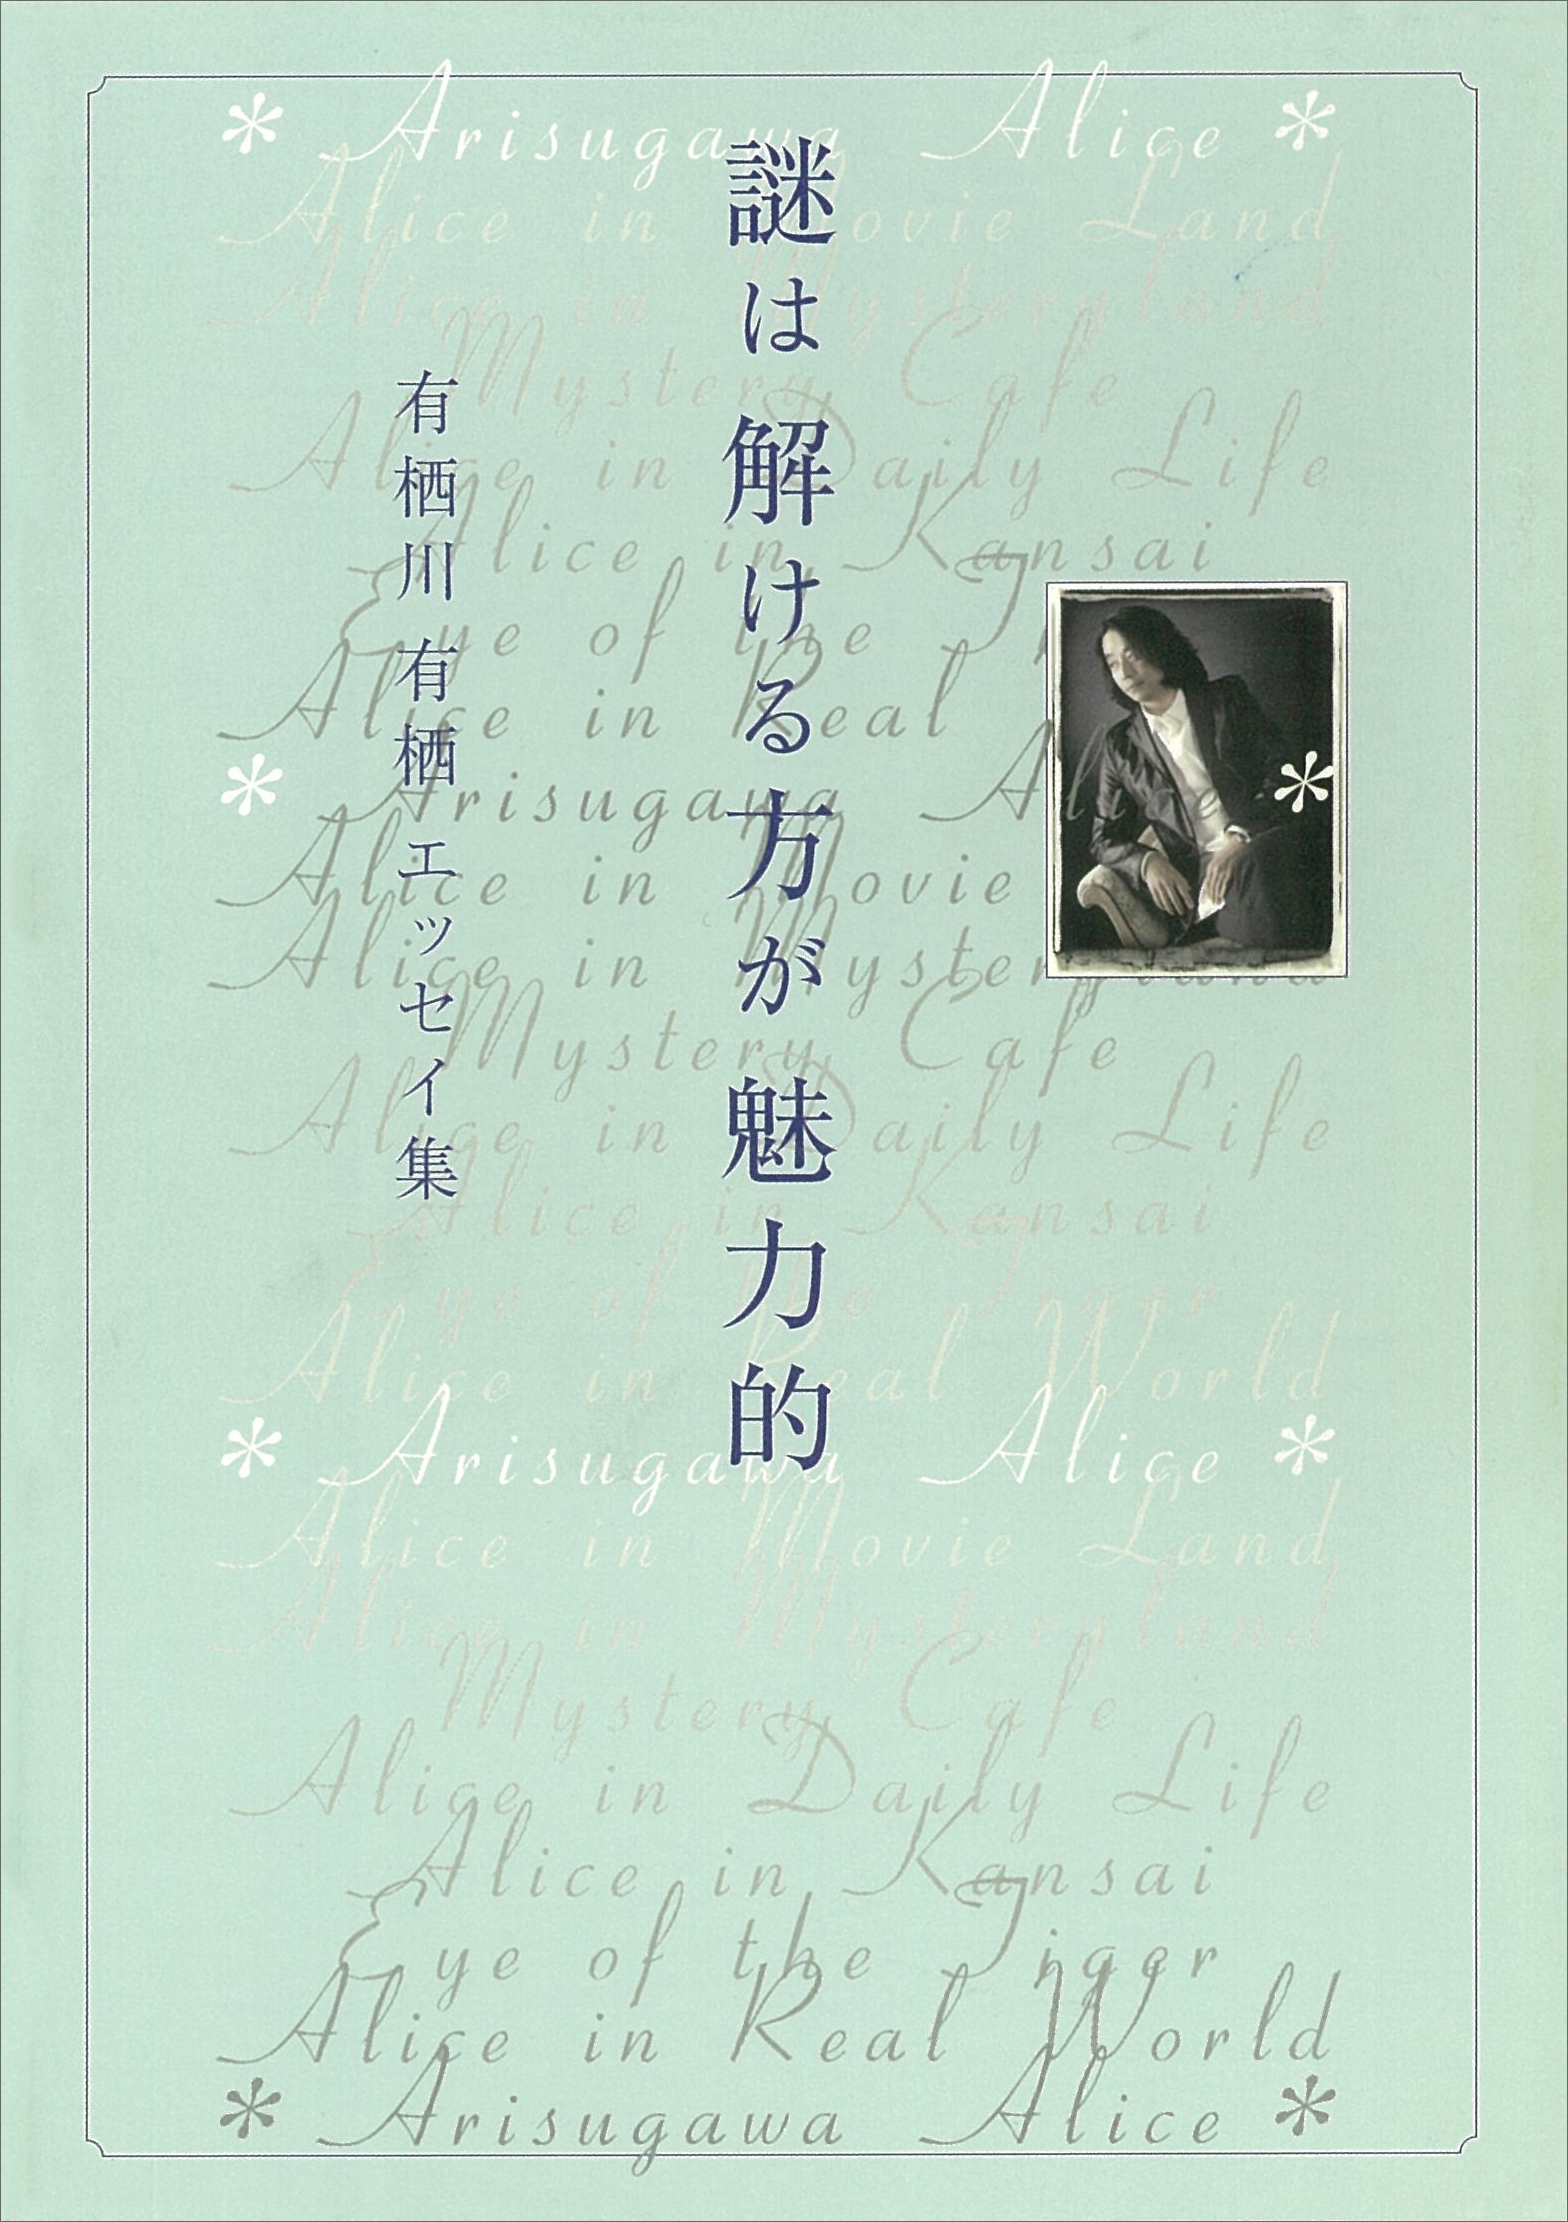 謎は解ける方が魅力的
有栖川有栖 エッセイ集
* Arisugawa Alice *
Alice in Movie Land
Alice in Mysteryland
Mystery Cafe
Alice in Daily Life
Alice in Kansai
Eye of the
Alice in Real
* Arisugawa Alice *
Alice in Movie
Alice in Mysteryland
Mystery Cafe
Alice in Daily Life
Alice in Kansai
Eye of the Tiger
Alice in Real World
* Arisugawa Alice *
Alice in Movie Land
Alice in Mysteryland
Mystery Cafe
Alice in Daily Life
Alice in Kansai
Eye of the Tiger
Alice in Real World
* Arisugawa Alice *